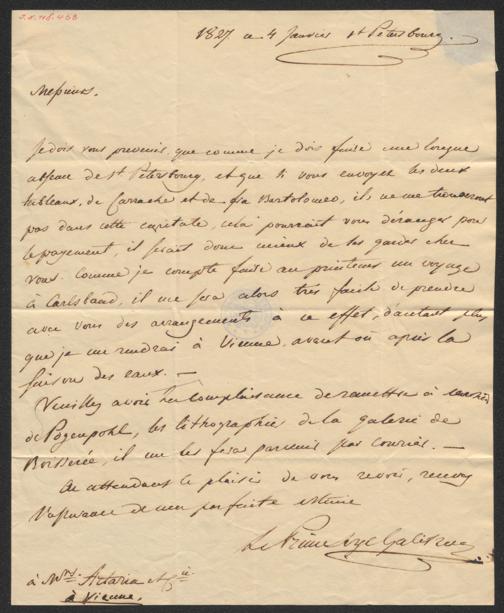 1827 ce 4 Janvier St Petersbourg.
Messieurs.
Je dois vous prevenir, que comme je dois faire une longue
absence de St Petersbourg, et que si vous envoyez les deux
tableaux, de Carrache et de fra Bartolomeo, ils ne me trouveront
pas dans cette capitale, cela pourrait vous déranger pour
le payement, il serait donc mieux de les garder chez
vous. Comme je compte faire au printems un voyage
à Carlsbaad, il me sera alors très facile de prendre
avec vous des arrangements à ce effet, d'autant plus
que je me rendrai à Vienne, avant où après la
saison des eaux. —
Veuillez avoir la complaisance de remettre à
de Pozenpohl, les lithographies de la galerie de
Boisserée, il me les fera parvenir par courier. —
En attendant le plaisir de vous revoir, recevez
l'assurance de mon parfaite estime
Le Prince Galitzin
à Mrs. Artaria et Cie.
à Vienne.